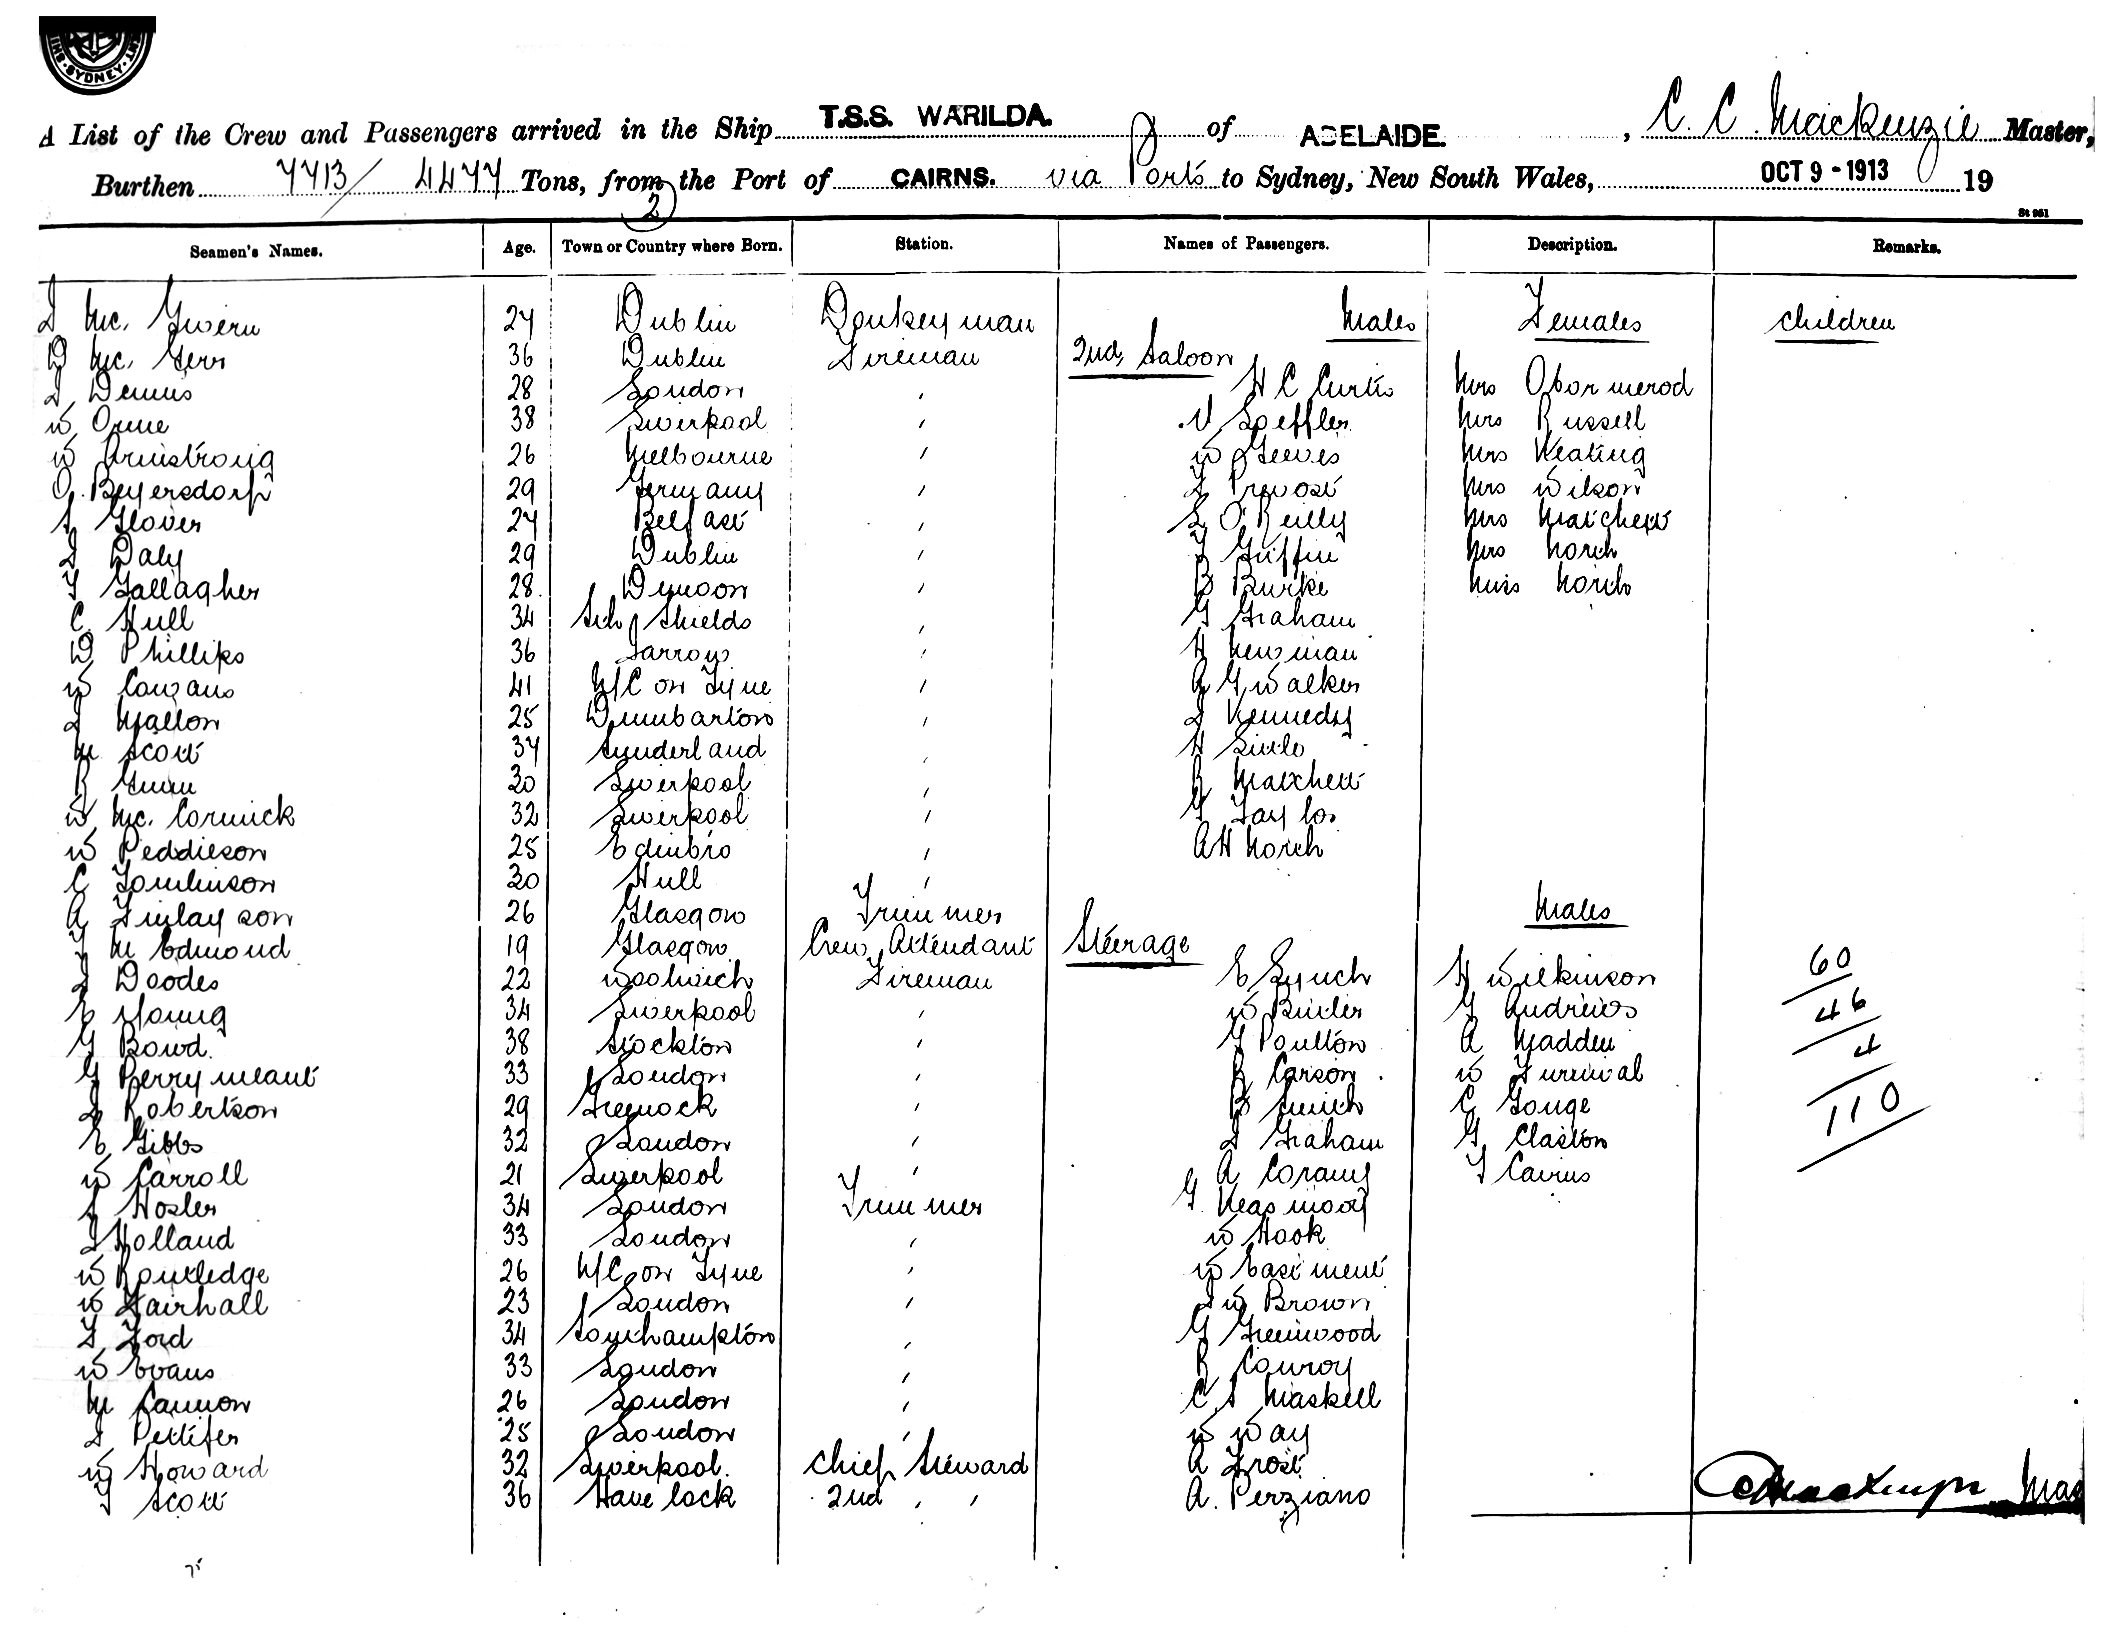 SYDNEY
A List of the Crew and Passengers arrived in the Ship T.S.S. WARILDA. of ADELAIDE. , C. C. Mackenzie Master,
Burthen 7713/4477 Tons, from the Port of CAIRNS. via Ports to Sydney, New South Wales, OCT 9 - 1913 19
2
St 961
Seamen's Names. Age. Town or Country where Born. Station. Names of Passengers. Description. Remarks.
Mc. 27 Dublin Donkeyman Males Females Children
D Mc. 36 Dublin Fireman 2nd Saloon
J Dennis 28 London ' H C Curtis Mrs Obormerod
W Orme 38 Liverpool ' V Loeffler Mrs Russell
W Armstrong 26 Melbourne ' W Geeves Mrs Keating
O. Beyersdorf 29 Germany ' J Provost Mrs Wilson
S Glover 27 Belfast ' L O'Reilly Mrs Matchett
J Daly 29 Dublin ' J Griffin Mrs North
T Gallagher 28 Dunoon ' B Burke Miss North
C Hull 34 Sth Shields ' G Graham
D Phillips 36 Jarrow ' H Newman
W Couzans 41 N/C on Tyne ' A G Walker
J Mallon 25 Dumbarton ' J Kennedy
M Scott 37 Sunderland ' H
R Gunn 30 Liverpool ' R Matchett
W Mc. Cormick 32 Liverpool ' G Taylor
W Peddieson 25 Edinbro ' A H North
C Tomlinson 30 Hull '
A Finlayson 26 Glasgow Trimmer Males
T M Edmond 19 Glasgow Crew Attendant Steerage
J Doodes 22 Woolwich Fireman E Lynch H Wilkinson 60
E Young 34 Liverpool ' W Butler G Andrews 46
G Bowd. 38 Stockton ' G Poulton A Madden 4
G Perryment 33 London ' R Carson W Furnival
J Robertson 29 Greenock ' B Smith C Gouge 110
E Gibbs 32 London ' J Graham G Claston
W Carroll 21 Liverpool ' A Corany T Cairns
S Hosler 34 London Trimmer G
J Holland 33 London ' W Hook
W Routledge 26 N/C on Tyne ' W Eastment
W Fairhall 23 London ' J W Brown
J Ford 34 Southampton ' G Greenwood
W Evans 33 London ' R Conroy
M Cannon 26 London ' C S Maskell
J Pettifer 25 London ' W Way
W Howard 32 Liverpool. Chief Steward A Frost
T Scott 36 Havelock 2nd ' ' A. Perziano
75